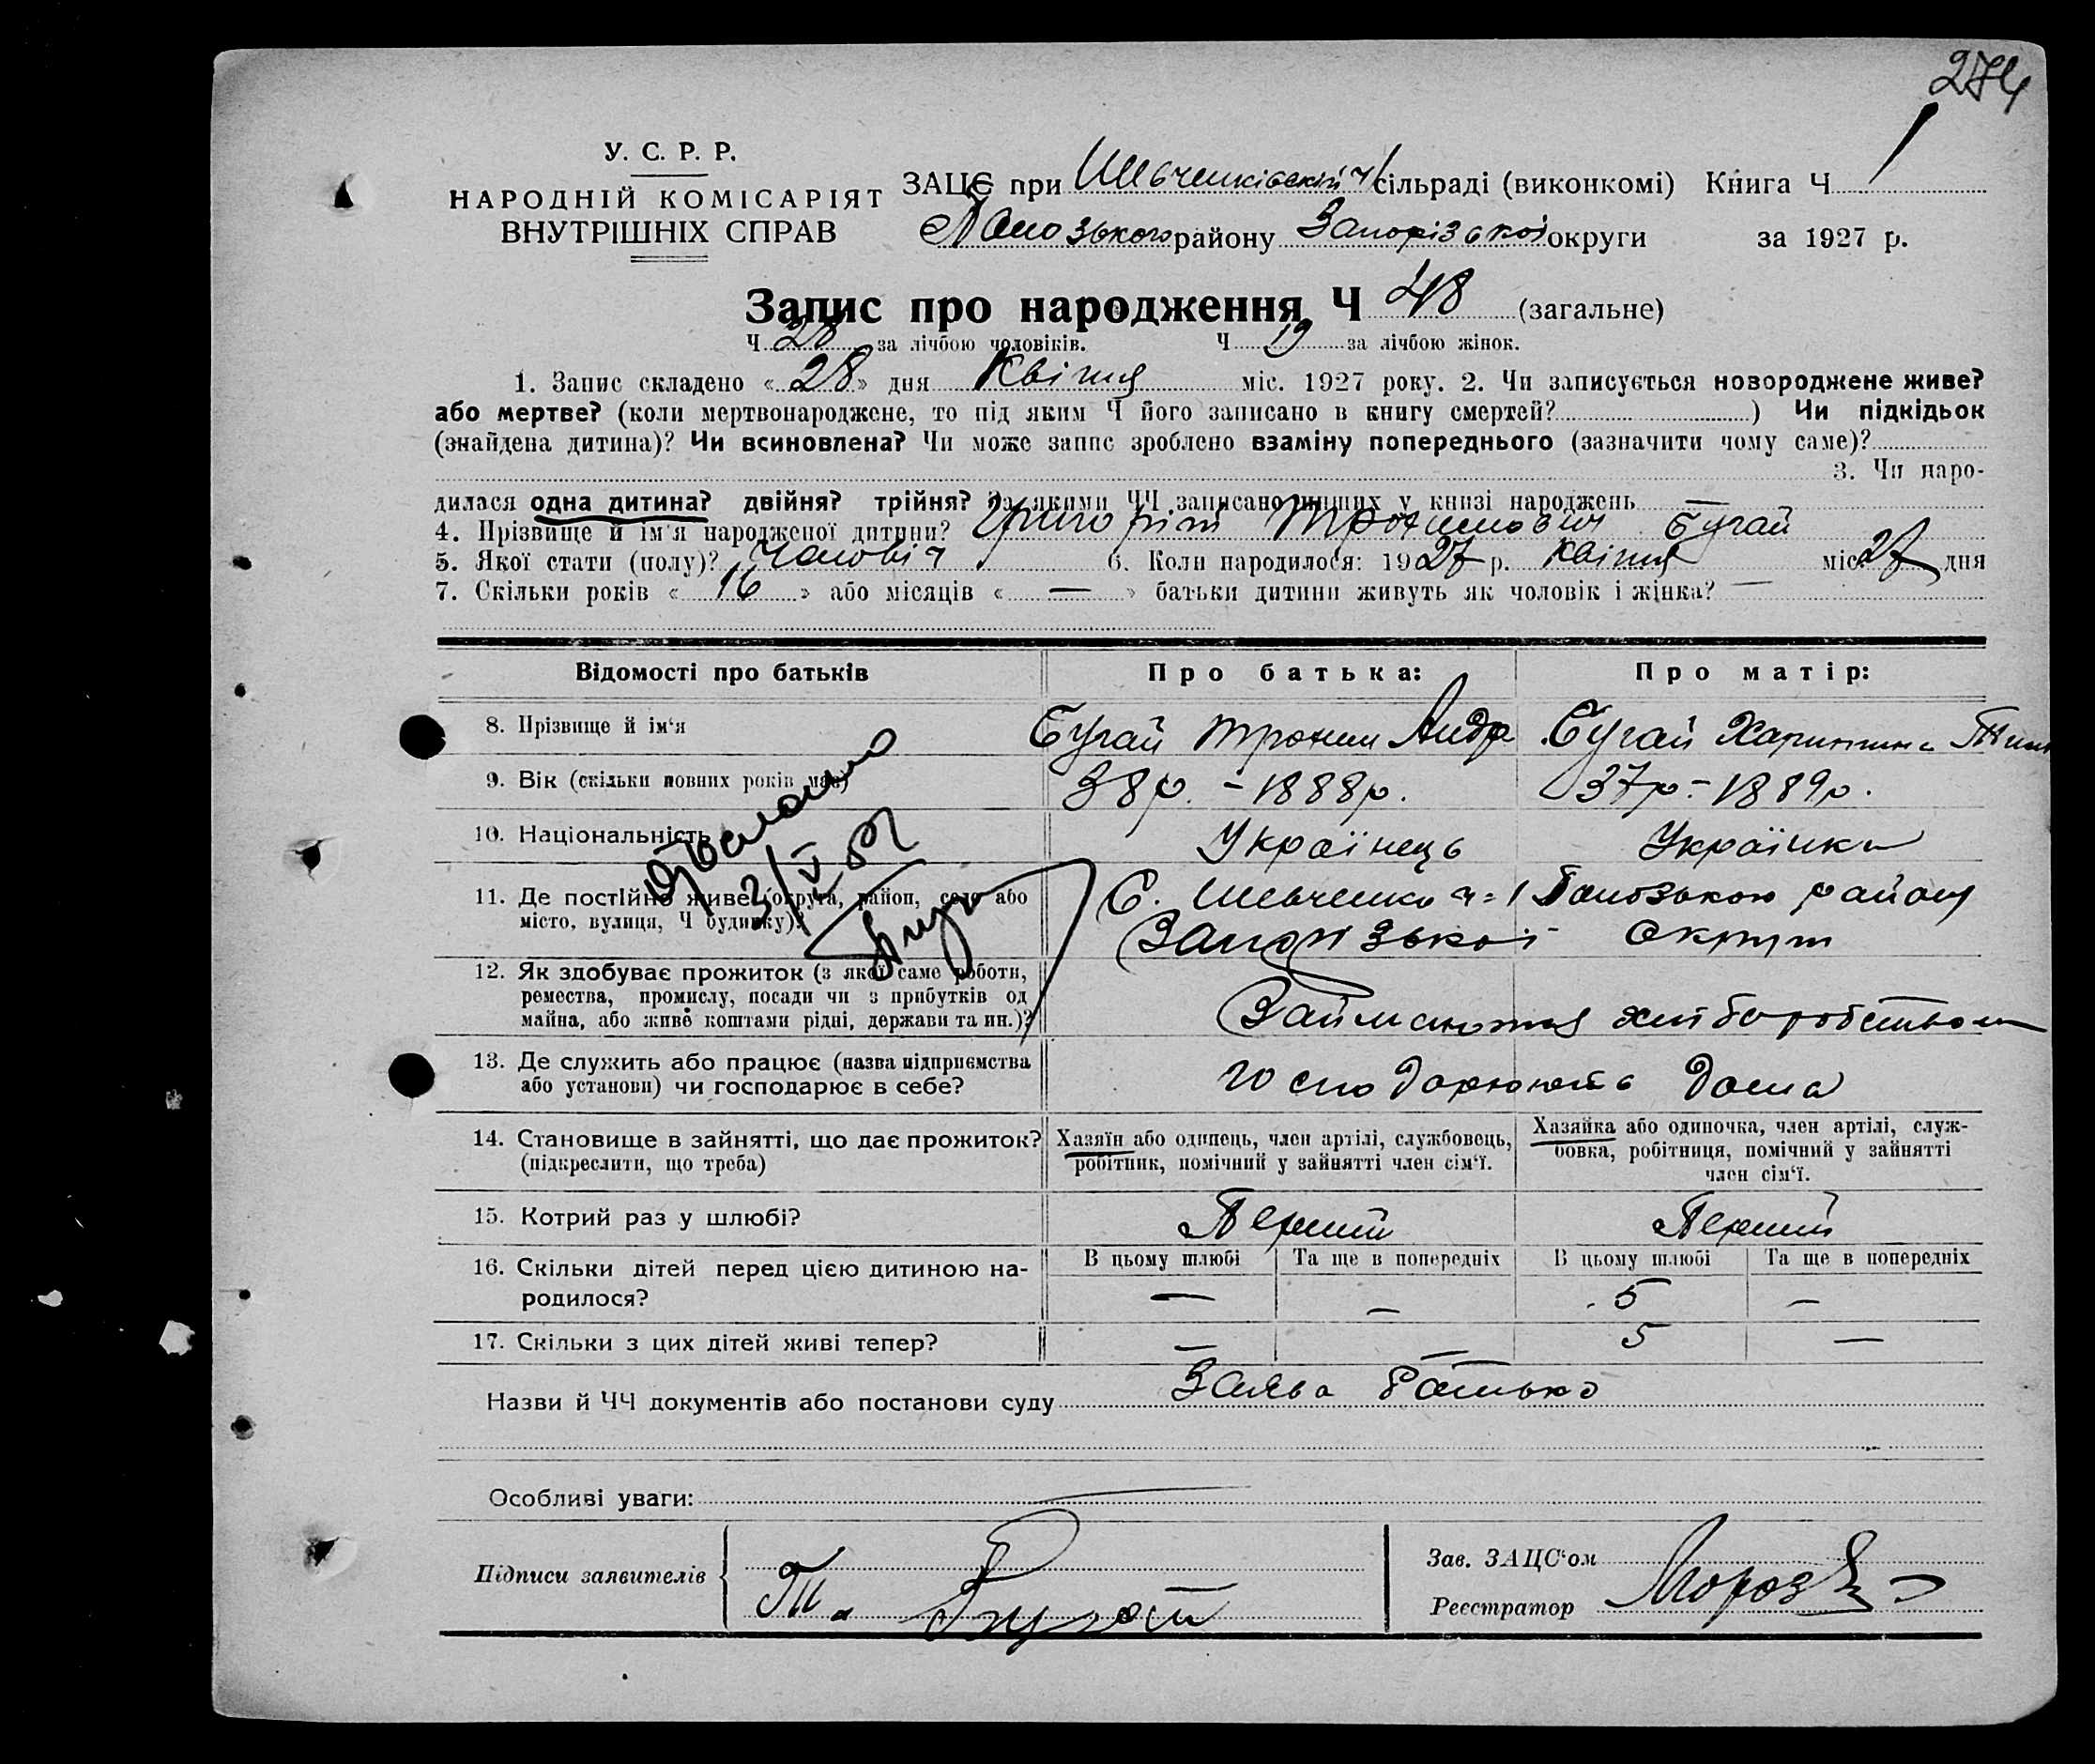 274
У. С. Р. Р.
НАРОДНІЙ КОМІСАРІЯТ
ВНУТРІШНІХ СПРАВ
ЗАЦС при Шевченківській ч/ сільраді (виконкомі) Книга Ч 1
району Запорізької округи за 1927 р.
Запис про народження Ч 48 (загальне)
Ч 28 за лічбою чоловіків. Ч 19 за лічбою жінок.
1. Запис складено « 28 » дня Квітня міс. 1927 року. 2. Чи записується новороджене живе?
або мертве? (коли мертвонароджене, то під яким Ч його записано в книгу смертей? ) Чи підкідьок
(знайдена дитина)? Чи всиновлена? Чи може запис зроблено взаміну попереднього (зазначити чому саме)?
3. Чи наро-
дилася одна дитина? двійня? трійня? За якими ЧЧ записано инших у книзі народжень —
4. Прізвище й ім'я народженої дитини? Григорій Трохимович Бугай
5. Якої стати (полу)? Чоловіч 6. Коли народилося: 1927 р. Квітня міс. 27 дня
7. Скільки років « 16 » або місяців « — » батьки дитини живуть як чоловік і жінка? —
Відомості про батьків Про батька: Про матір:
8. Прізвище й ім'я Бугай Трохим Андр Бугай Харитина Тим
9. Вік (скільки повних років має) 38 р. - 1888 р. 37 р. - 1889 р.
10. Національність Українець Українка
11. Де постійно живе (округа, район, село або С. Шевченко ч=1 району
місто, вулиця, Ч будинку)? Запорізької Округи
12. Як здобуває прожиток (з якої саме роботи,
ремества, промислу, посади чи з прибутків од
майна, або живе коштами рідні, держави та ин.)? Займаються хліборобством
13. Де служить або працює (назва підприємства
або установи) чи господарює в себе? господарюють дома
14. Становище в зайнятті, що дає прожиток? Хазяїн або одинець, член артілі, службовець, Хазяйка або одиночка, член артілі, служ-
(підкреслити, що треба) робітник, помічний у зайнятті член сім'ї. бовка, робітниця, помічний у зайнятті
член сім'ї.
15. Котрий раз у шлюбі? Перший Перший
16. Скільки дітей перед цією дитиною на- В цьому шлюбі Та ще в попередніх В цьому шлюбі Та ще в попередніх
родилося? — — 5 —
17. Скільки з цих дітей живі тепер? — — 5 —
Назви й ЧЧ документів або постанови суду Заява Батько
Особливі уваги:
Підписи заявителів Т. Бугай
Зав. ЗАЦС'ом
Реєстратор Мороз